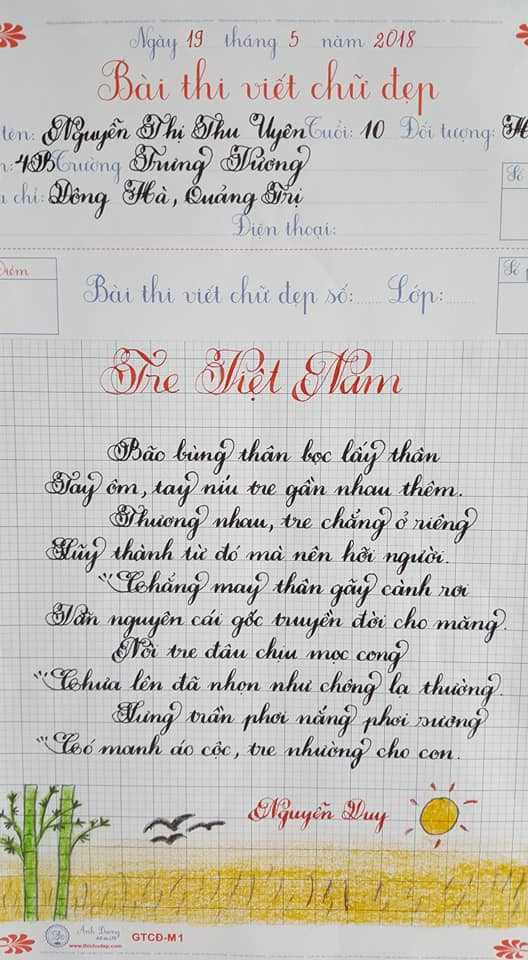 Ngày 19 tháng 5 năm 2018
Bài thi viết chữ đẹp
tên: Nguyễn Thị Thu Uyên Tuổi: 10 Đối tượng: H
n: 4B Trường Trưng Vương
a chỉ: Đông Hà, Quảng Trị
Điện thoại:
Điểm
Bài thi viết chữ đẹp số: Lớp:
Số
Tre Việt Nam
Bão bùng thân bọc lấy thân
Tay ôm, tay níu tre gần nhau thêm.
Thương nhau, tre chẳng ở riêng
Lũy thành từ đó mà nên hỡi người.
Chẳng may thân gãy cành rơi
Vẫn nguyên cái gốc truyền đời cho măng.
Nòi tre đâu chịu mọc cong
Chưa lên đã nhọn như chông lạ thường.
Lưng trần phơi nắng phơi sương
Có manh áo cộc, tre nhường cho con.
Nguyễn Duy
Ánh Dương
www.thichudep.com
GTCĐ-M1